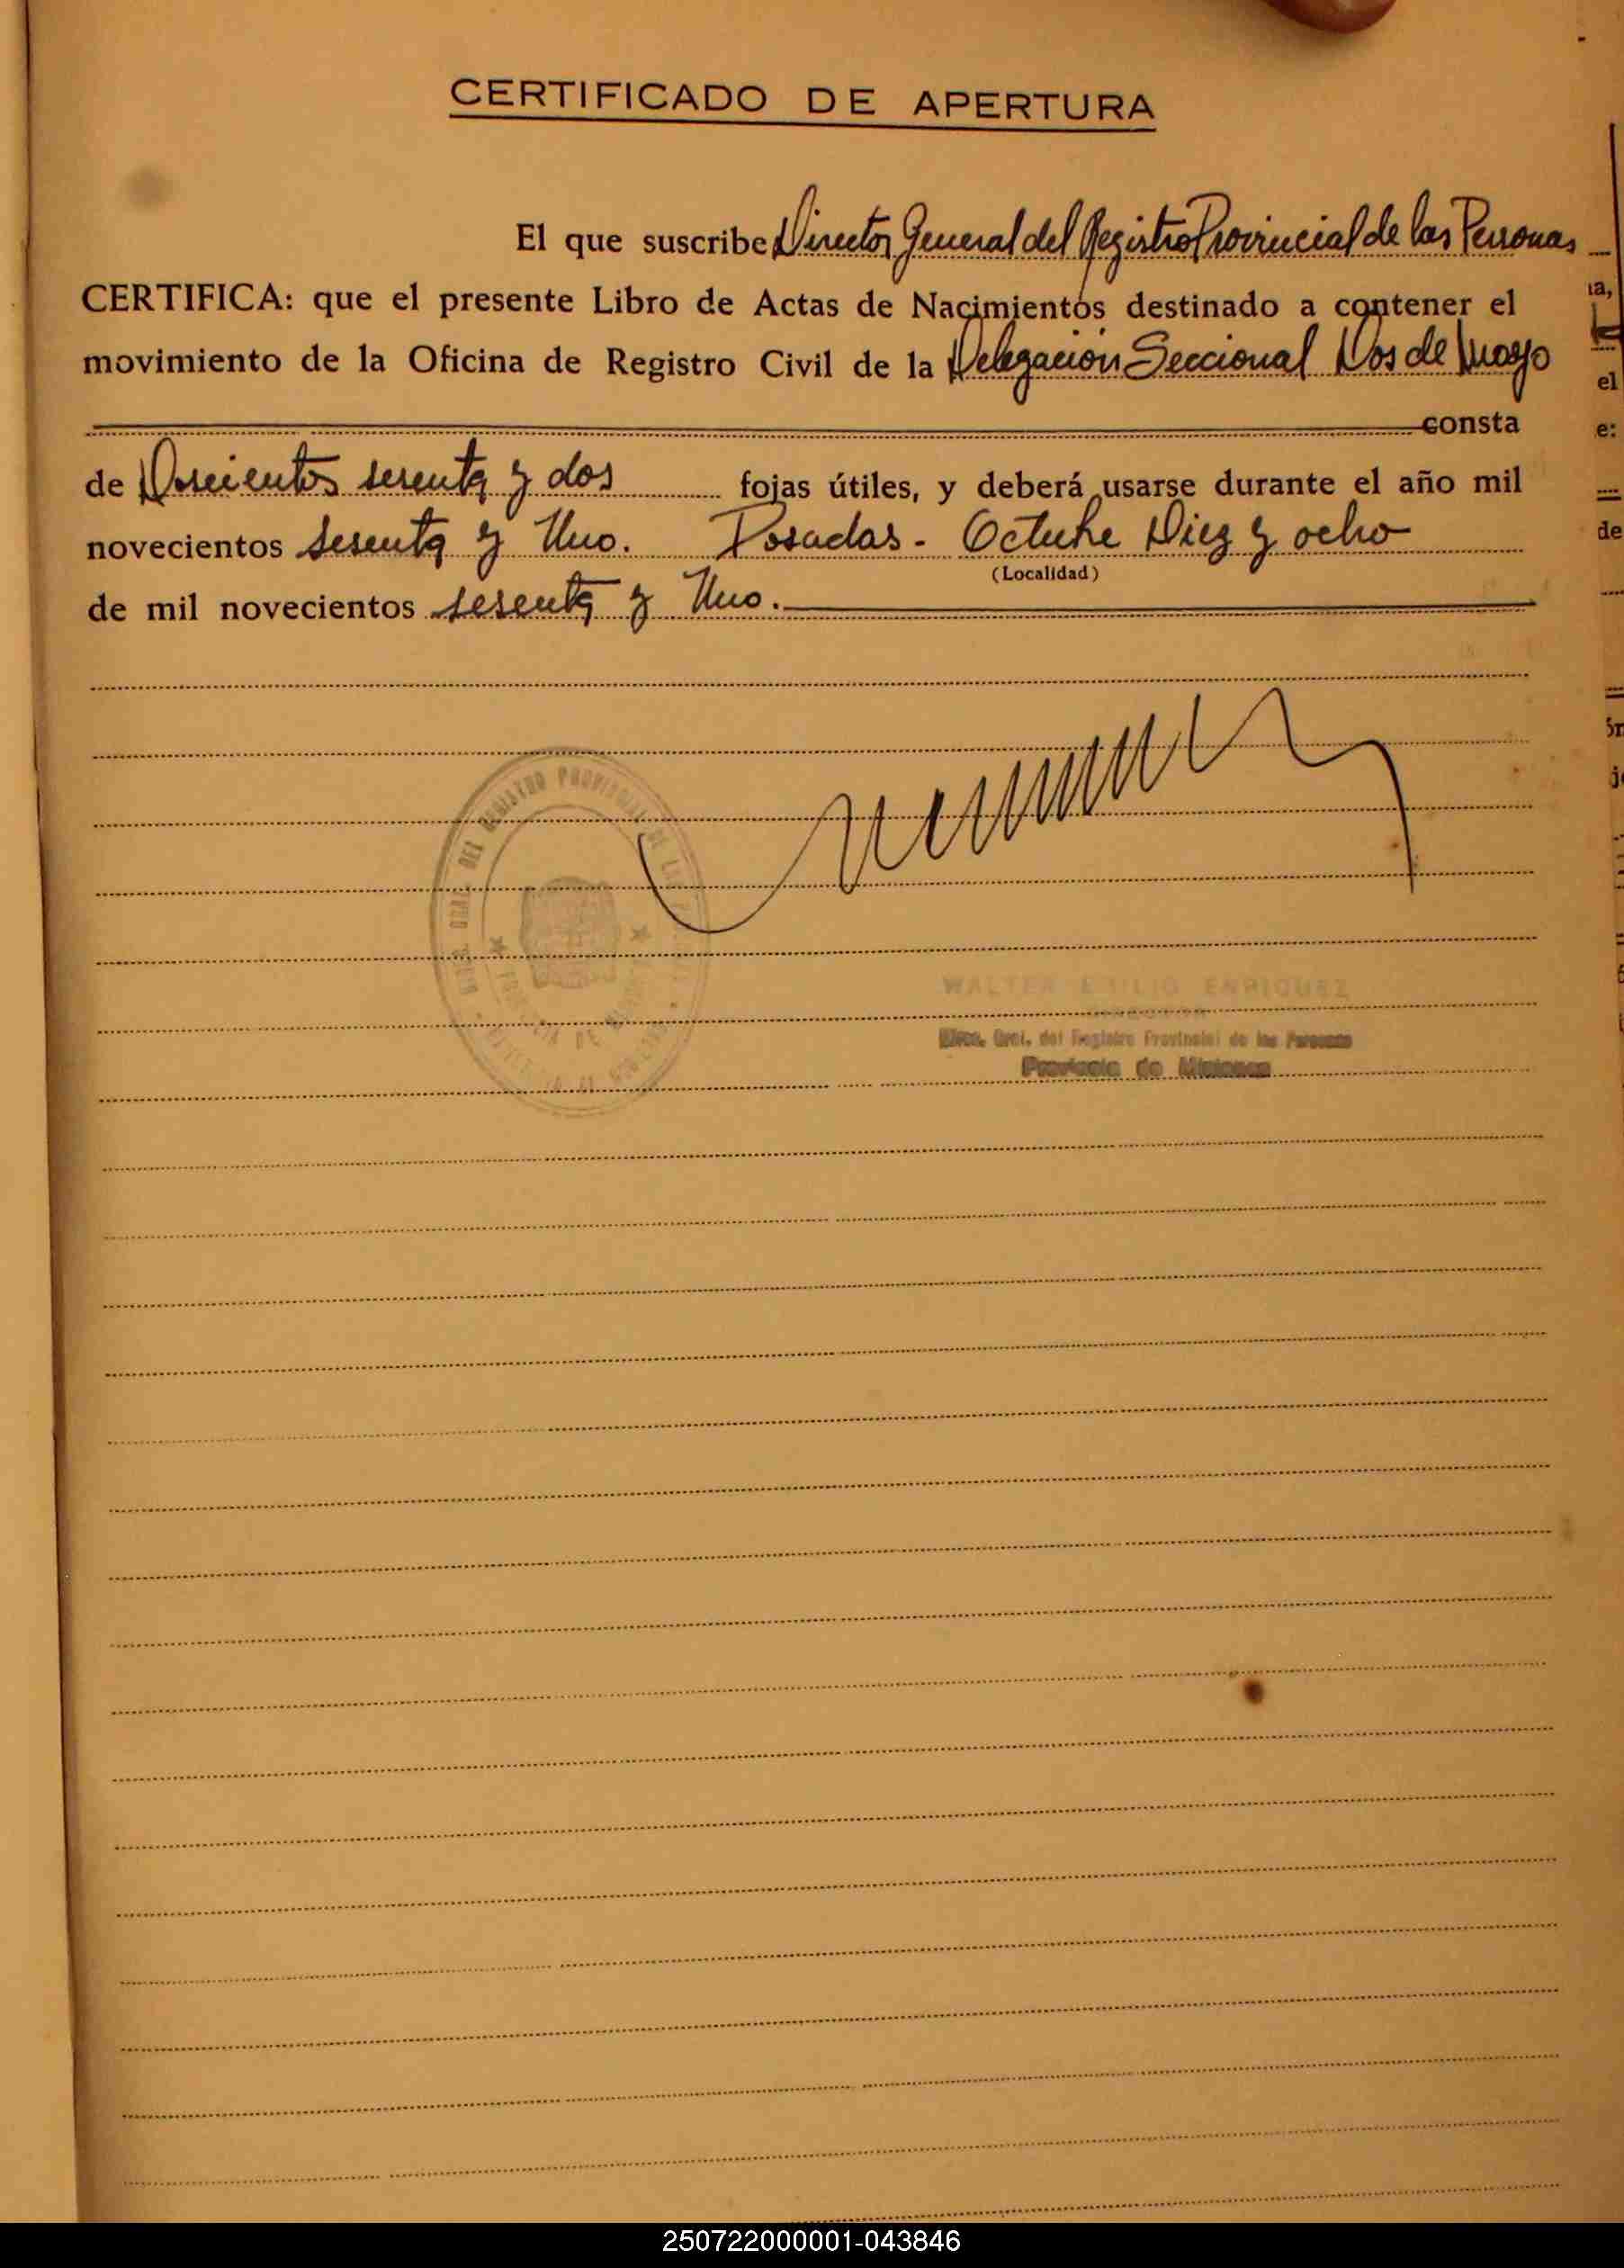 CERTIFICADO DE APERTURA
El que suscribe Director General del Registro Provincial de las Personas
CERTIFICA: que el presente Libro de Actas de Nacimientos destinado a contener el
movimiento de la Oficina de Registro Civil de la Delegación Seccional Dos de Mayo
consta
de Doscientos sesenta y dos fojas útiles, y deberá usarse durante el año mil
novecientos sesenta y Uno. Posadas - Octubre Diez y ocho
(Localidad)
de mil novecientos sesenta y Uno.
DEL REGISTRO PROVINCIAL DE
PROVINCIA DE
WALTER EMILIO ENRIQUEZ
Direc. Gral. del Registro Provincial de las Personas
Provincia de Misiones
ia,
el
e:
de
250722000001-043846